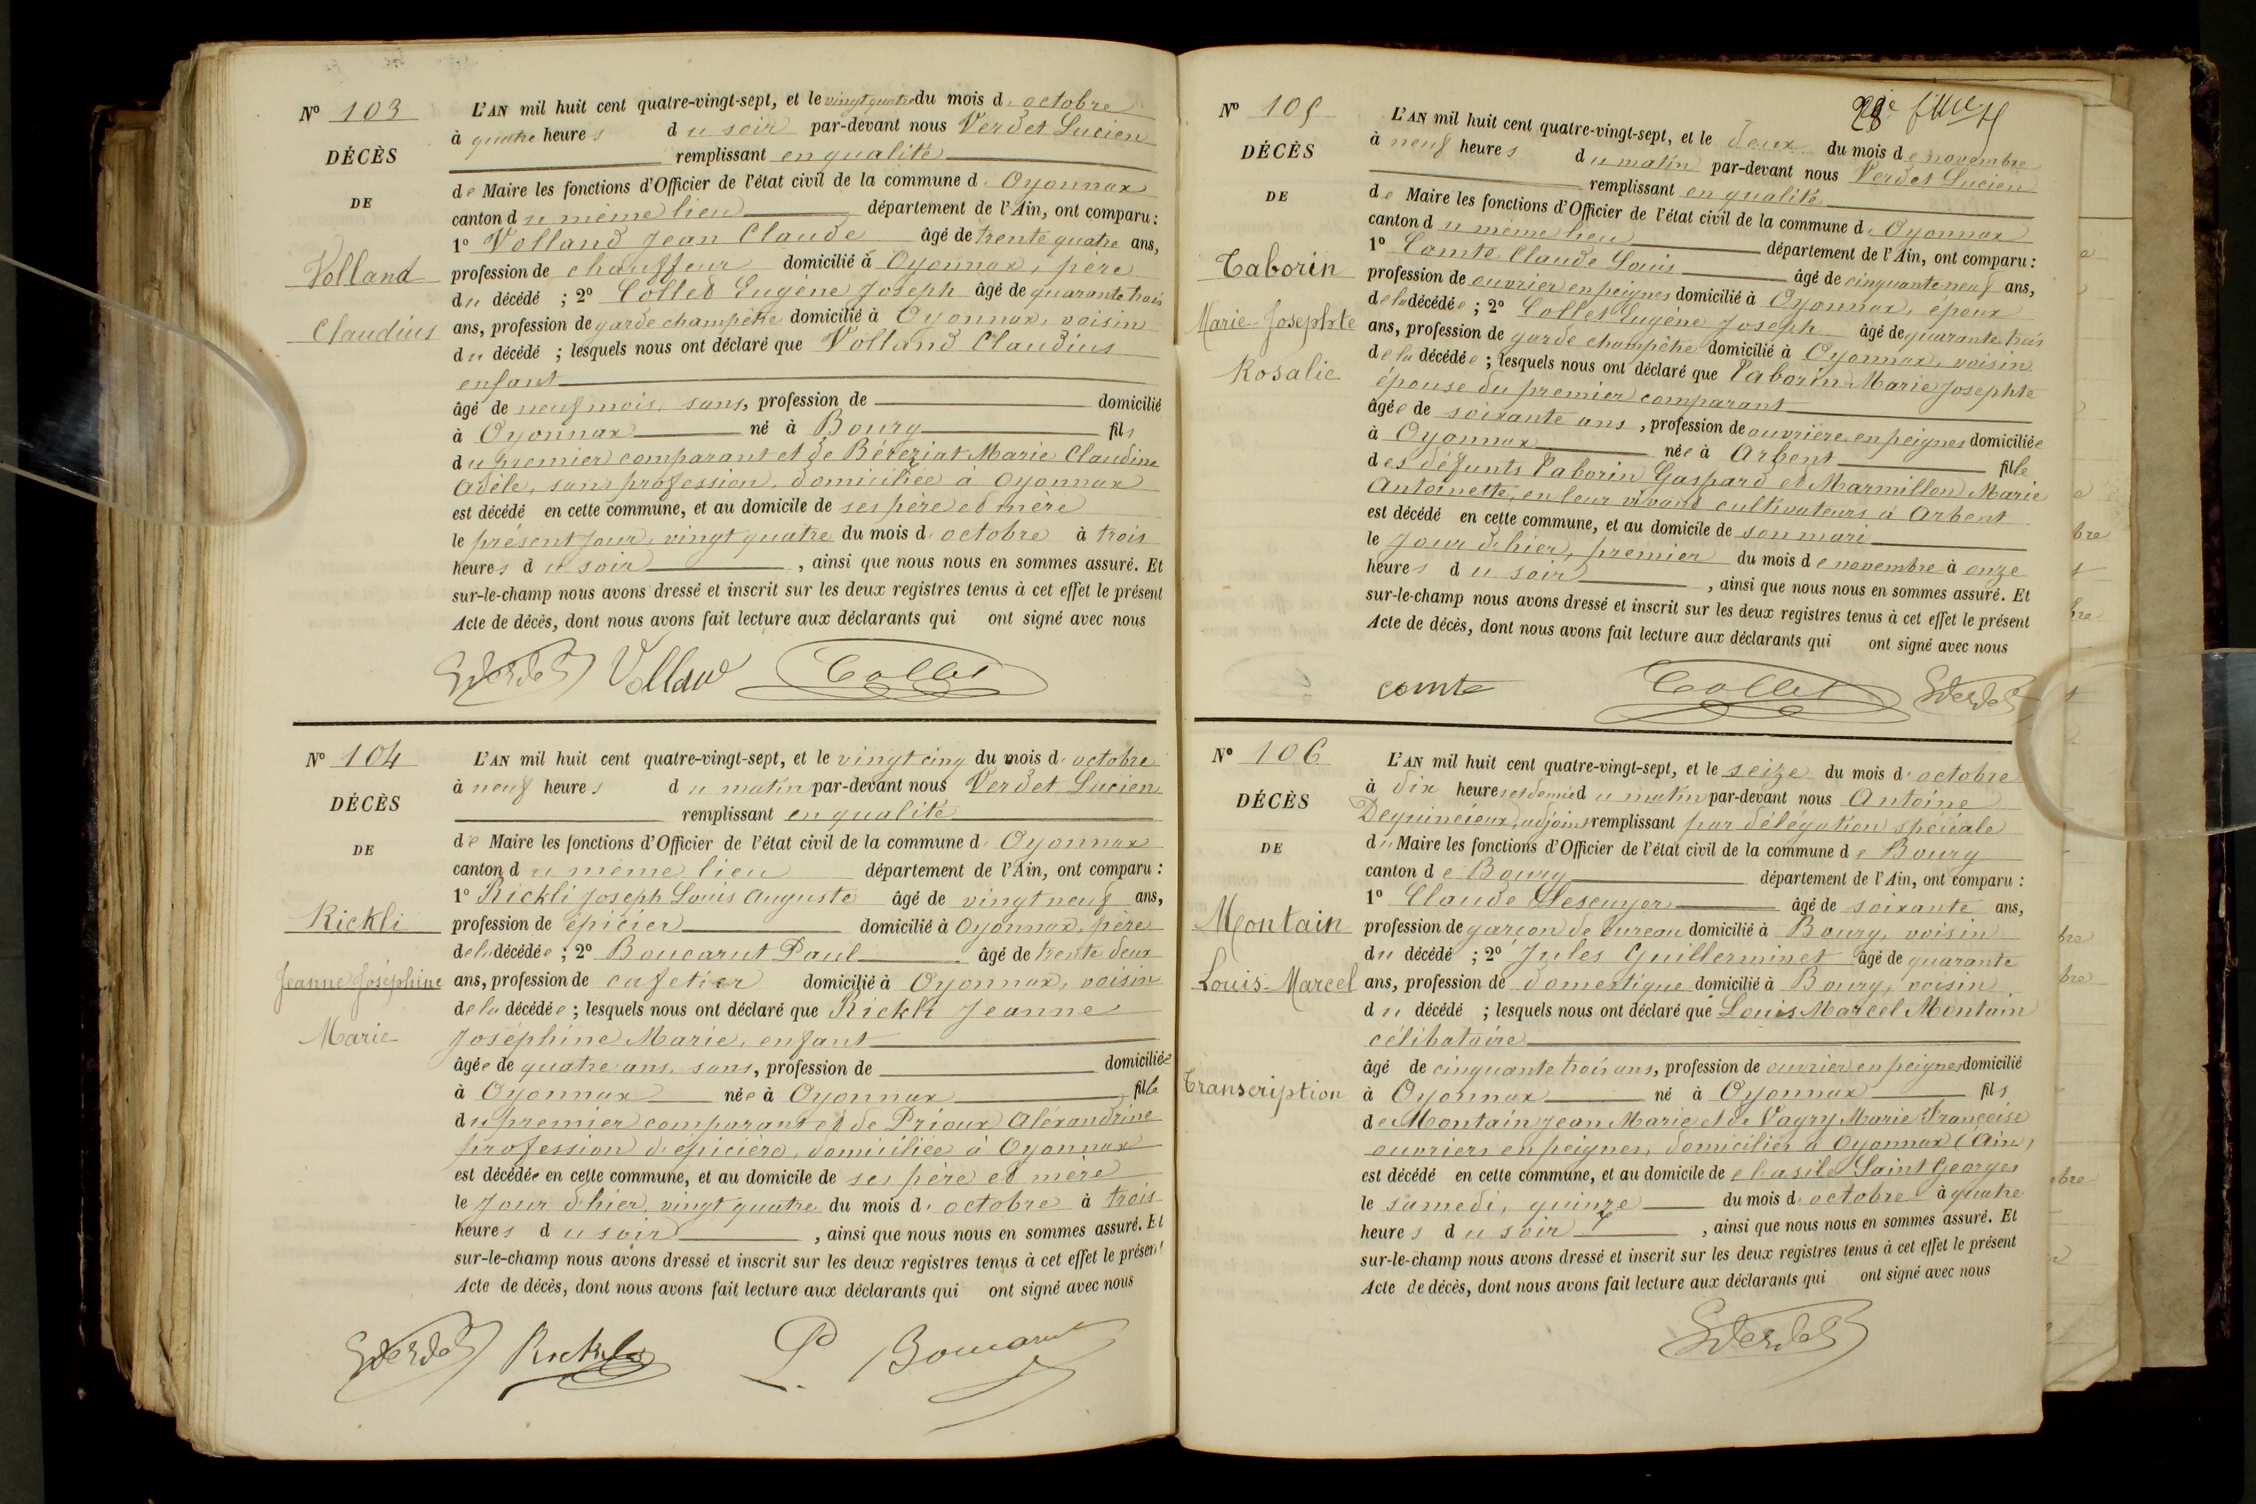 N° 103
DÉCÈS
DE
Volland
Claudius
L'AN mil huit cent quatre-vingt-sept, et le vingt quatre du mois d'octobre
à quatre heures du soir par-devant nous Verdet Lucien
remplissant en qualité
de Maire les fonctions d'Officier de l'état civil de la commune d'Oyonnax
canton du même lieu département de l'Ain, ont comparu :
1° Volland Jean Claude âgé de trente quatre ans,
profession de chauffeur domicilié à Oyonnax, père
du décédé ; 2° Collet Eugène Joseph âgé de quarante trois
ans, profession de garde champêtre domicilié à Oyonnax, voisin
du décédé ; lesquels nous ont déclaré que Volland Claudius
enfant
âgé de neuf mois, sans, profession de domicilié
à Oyonnax né à Bourg fils
du premier comparant et de Béréziat Marie Claudine
Adèle, sans profession, domiciliée à Oyonnax
est décédé en cette commune, et au domicile de ses père et mère
le présent jour, vingt quatre du mois d'octobre à trois
heures du soir , ainsi que nous nous en sommes assuré. Et
sur-le-champ nous avons dressé et inscrit sur les deux registres tenus à cet effet le présent
Acte de décès, dont nous avons fait lecture aux déclarants qui ont signé avec nous
Verdet Volland Collet
N° 104
DÉCÈS
DE
Rickli
Jeanne Joséphine
Marie
L'AN mil huit cent quatre-vingt-sept, et le vingt cinq du mois d'octobre
à neuf heures du matin par-devant nous Verdet Lucien
remplissant en qualité
de Maire les fonctions d'Officier de l'état civil de la commune d'Oyonnax
canton du même lieu département de l'Ain, ont comparu :
1° Rickli Joseph Louis Auguste âgé de vingt neuf ans,
profession de épicier domicilié à Oyonnax, père
de la décédée ; 2° Boucarut Paul âgé de trente deux
ans, profession de cafetier domicilié à Oyonnax, voisin
de la décédée ; lesquels nous ont déclaré que Rickli Jeanne
Joséphine Marie, enfant
âgée de quatre ans, sans, profession de domiciliée
à Oyonnax née à Oyonnax fille
du premier comparant et de Prioux Aléxandrine
profession d'épicière, domiciliée à Oyonnax
est décédée en cette commune, et au domicile de ses père et mère
le jour d'hier, vingt quatre du mois d'octobre à trois
heures du soir , ainsi que nous nous en sommes assuré. Et
sur-le-champ nous avons dressé et inscrit sur les deux registres tenus à cet effet le présent
Acte de décès, dont nous avons fait lecture aux déclarants qui ont signé avec nous
Verdet Rickli P. Boucarut
N° 105
DÉCÈS
DE
Taborin
Marie-Josephte
Rosalie
L'AN mil huit cent quatre-vingt-sept, et le deux du mois de novembre
à neuf heures du matin par-devant nous Verdet Lucien
remplissant en qualité
de Maire les fonctions d'Officier de l'état civil de la commune d'Oyonnax
canton du même lieu département de l'Ain, ont comparu :
1° Comte Claude Louis âgé de cinquante neuf ans,
profession de ouvrier en peignes domicilié à Oyonnax, époux
de la décédée ; 2° Collet Eugène Joseph âgé de quarante trois
ans, profession de garde champêtre domicilié à Oyonnax, voisin
de la décédée ; lesquels nous ont déclaré que Taborin Marie Josephte
épouse du premier comparant
âgée de soixante ans, profession de ouvrière en peignes domiciliée
à Oyonnax née à Arbent fille
des défunts Taborin Gaspard et Marmillon Marie
Antoinette, en leur vivant cultivateurs à Arbent
est décédé en cette commune, et au domicile de son mari
le jour d'hier, premier du mois de novembre à onze
heures du soir , ainsi que nous nous en sommes assuré. Et
sur-le-champ nous avons dressé et inscrit sur les deux registres tenus à cet effet le présent
Acte de décès, dont nous avons fait lecture aux déclarants qui ont signé avec nous
comte Collet Verdet
N° 106
DÉCÈS
DE
Montain
Louis-Marcel
Transcription
L'AN mil huit cent quatre-vingt-sept, et le seize du mois d'octobre
à dix heures et demie du matin par-devant nous Antoine
Dequincieux, adjoint remplissant par délégation spéciale
du Maire les fonctions d'Officier de l'état civil de la commune de Bourg
canton de Bourg département de l'Ain, ont comparu :
1° Claude Lescuyer âgé de soixante ans,
profession de garçon de bureau domicilié à Bourg, voisin
du décédé ; 2° Jules Guillerminet âgé de quarante
ans, profession de domestique domicilié à Bourg, voisin
du décédé ; lesquels nous ont déclaré que Louis Marcel Montain
célibataire
âgé de cinquante trois ans, profession de ouvrier en peignes domicilié
à Oyonnax né à Oyonnax fils
de Montain Jean Marie et de Vagry Marie Françoise
ouvriers en peignes, domiciliés à Oyonnax (Ain)
est décédé en cette commune, et au domicile de el'asile Saint Georges
le samedi, quinze du mois d'octobre à quatre
heures du soir , ainsi que nous nous en sommes assuré. Et
sur-le-champ nous avons dressé et inscrit sur les deux registres tenus à cet effet le présent
Acte de décès, dont nous avons fait lecture aux déclarants qui ont signé avec nous
Verdet